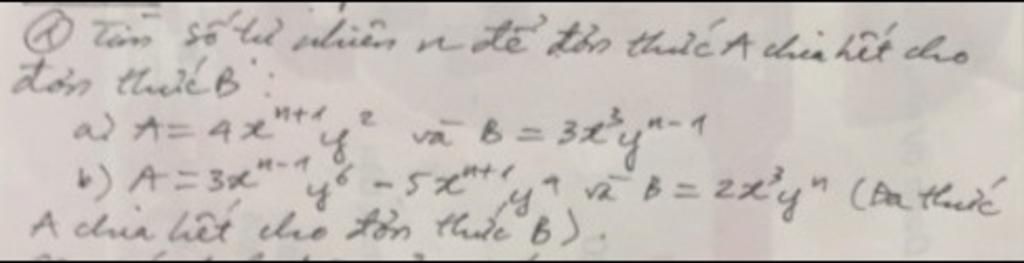 ① Tìm số tự nhiên n để đơn thức A chia hết cho
đơn thức B :
a) A = 4x^{n+1}y^2 và B = 3x^3y^{n-1}
b) A = 3x^{n-1}y^6 - 5x^{n+1}y^4 và B = 2x^3y^n (Đa thức
A chia hết cho đơn thức B).